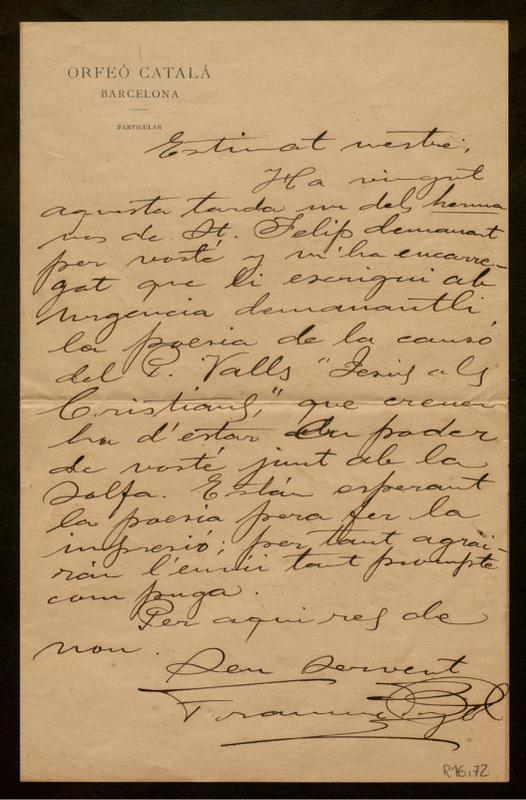 ORFEÓ CATALÁ
BARCELONA
PARTICULAR
Estimat mestre,
Ha vingut
aquesta tarda un dels herma
nos de St. Felip demanant
per vosté y m'ha encarre-
gat que li escrigui ab
urgencia demanantli
la poesia de la cansó
del P. Valls "Jesús als
Cristians," que creuen
ha d'estar en poder
de vosté junt ab la
solfa. Están esperant
la poesia pera fer la
impresió; per tant agrai-
rán l'envii tant prompte
com puga.
Per aqui res de
nou.
Seu servent
Francisco Pujol
R16,72